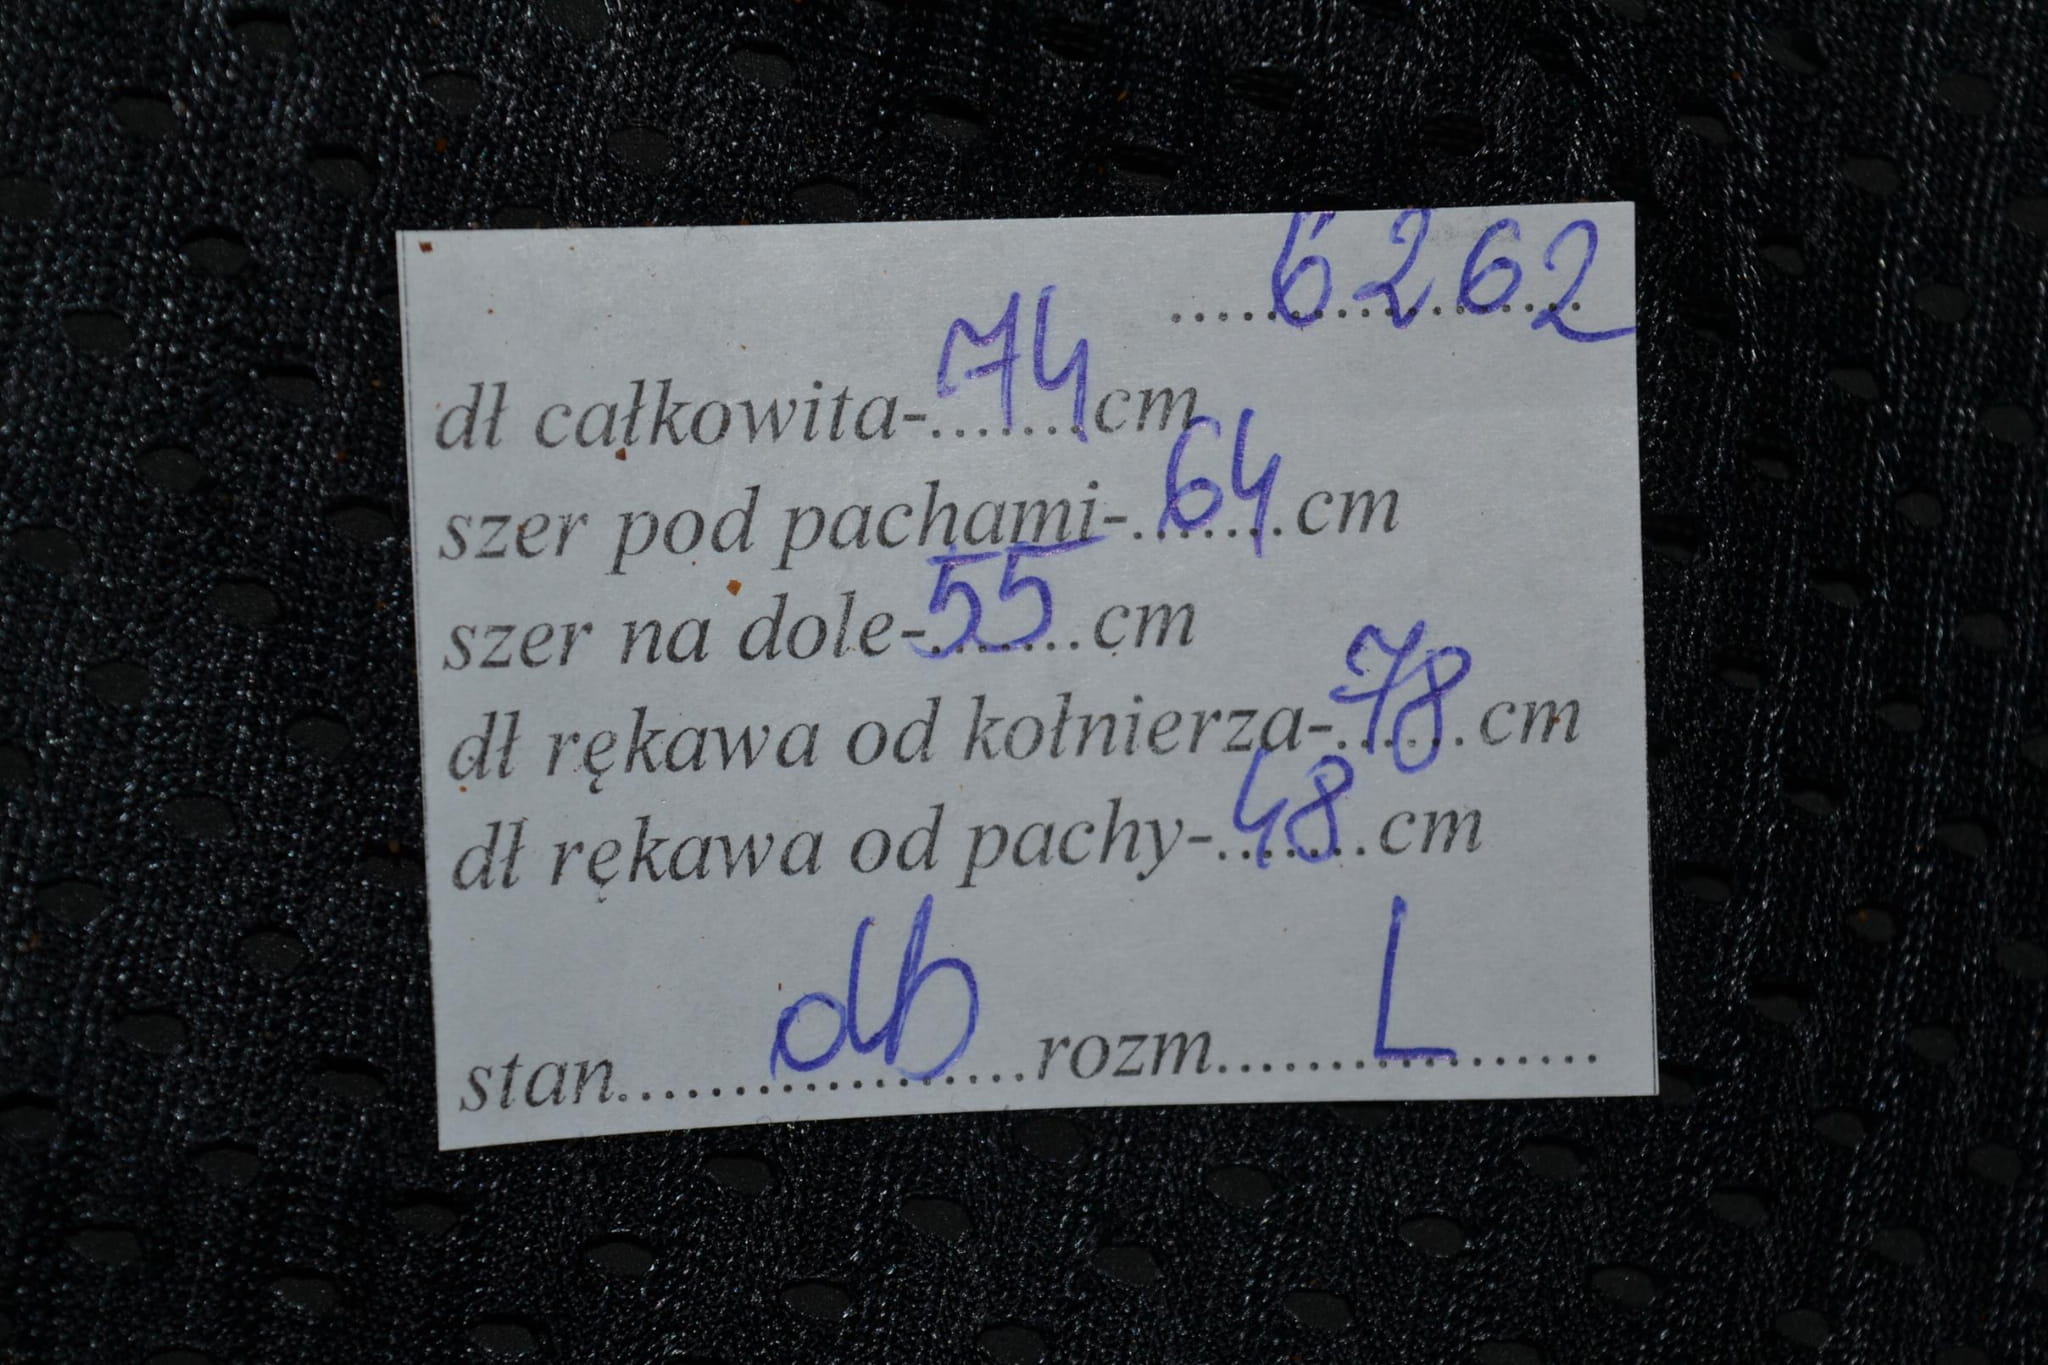 6262
dł całkowita-74cm
szer pod pachami-64cm
szer na dole-55cm
dł rękawa od kołnierza-78cm
dł rękawa od pachy-48cm
stan db rozm L